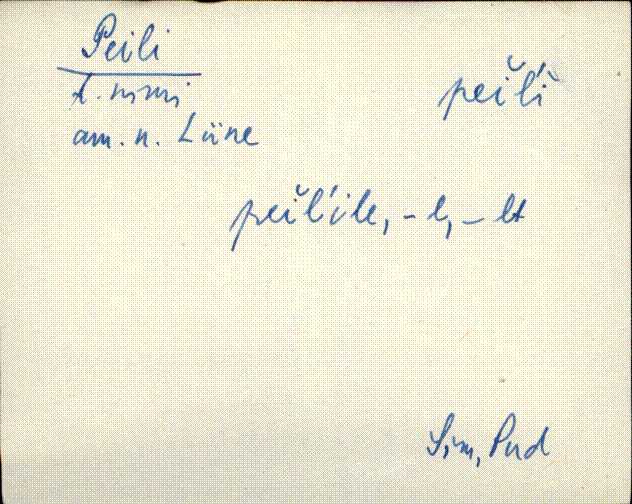 Peili
t. nimi
am. n. Lüne
peĭl'i
peĭl'ile, -l, -lt
Sim, Pud